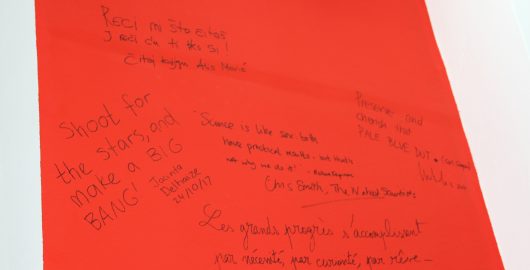 Reci mi što čitaš
I reći ću ti tko si!
Čitaj knjigu
Shoot for
the stars, and
make a BIG
BANG!
24/10/17
"Science is like sex both
have practical results, but that's
not why we do it"
Chris Smith, The Naked Scientists
Preserve and
cherish that
PALE BLUE DOT
Les grands progrès s'accomplissent
par nécessité, par curiosité, par rêve –